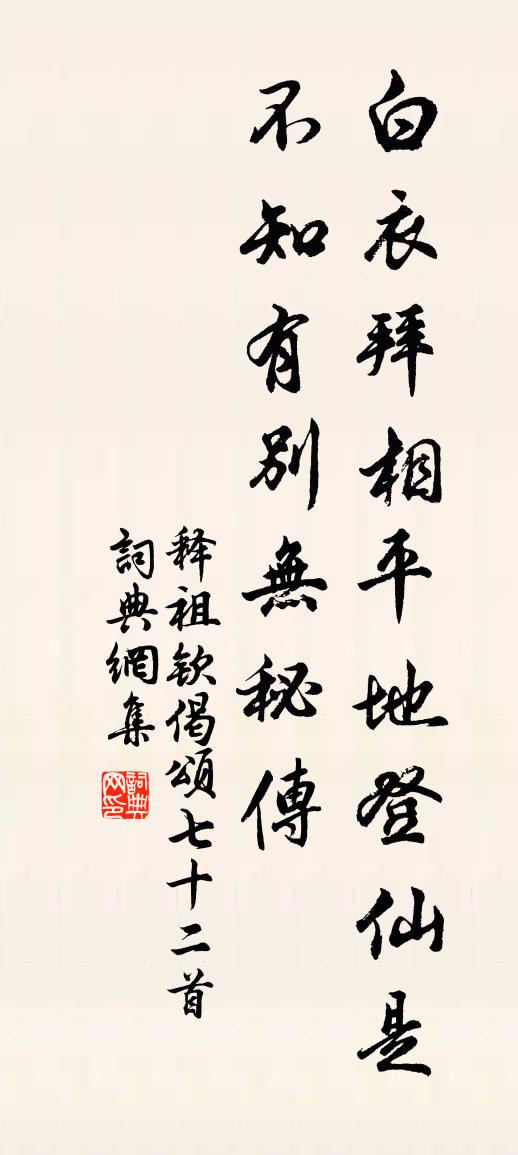 白衣拜相平地登仙是
不知有別無秘傳
释祖钦偈頌七十二首
詞典網集
詞典网印